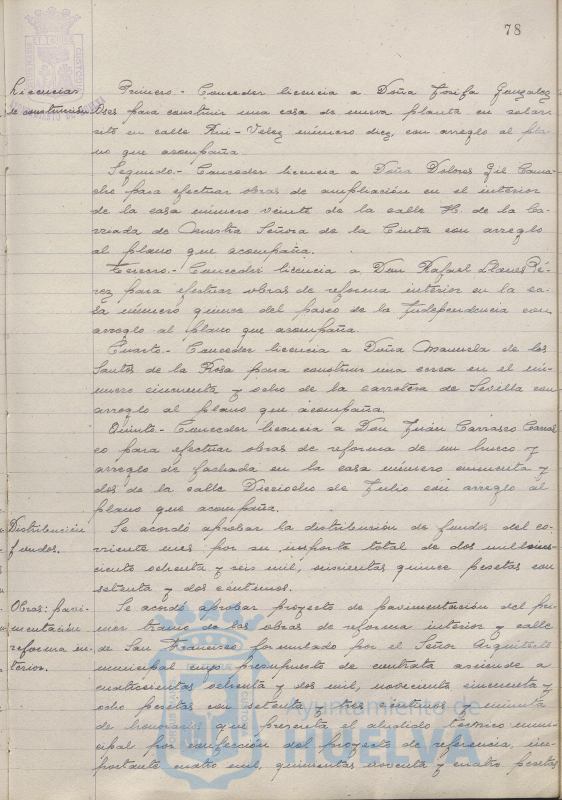 78
Licencias
de construcción
Primero.- Conceder licencia a Doña Josefa Gonzalez
para construir una casa de nueva planta en solar
sito en calle Rui-Velez número diez, con arreglo al pla-
no que acompaña.
Segundo.- Conceder licencia a Doña Dolores Gil Cama-
cho para efectuar obras de ampliación en el interior
de la casa número veinte de la calle H. de la Ba-
rriada de Nuestra Señora de la Cinta con arreglo
al plano que acompaña.
Tercero.- Conceder licencia a Don Rafael Llanes Pé-
rez para efectuar obras de reforma interior en la ca-
sa número quince del paseo de la Independencia con
arreglo al plano que acompaña.
Cuarto.- Conceder licencia a Doña Manuela de los
Santos de la Rosa para construir una cerca en el nú-
mero cincuenta y ocho de la carretera de Sevilla con
arreglo al plano que acompaña.
Quinto.- Conceder licencia a Don Juán Carrasco Carras
co para efectuar obras de reforma de un hueco y
arreglo de fachada en la casa número cincuenta y
dos de la calle Dieciocho de Julio con arreglo al
plano que acompaña.
Distribución
fondos.
Se acordó aprobar la distribución de fondos del co-
rriente mes por su importe total de dos millones
ciento ochenta y seis mil, seiscientas quince pesetas con
setenta y dos céntimos.
Obras: pavi-
mentación
reforma in-
terior.
Se acordó aprobar proyecto de pavimentación del pri-
mer tramo de las obras de reforma interior y calle
de San Francisco formulado por el Señor Arquitecto
municipal cuyo presupuesto de contrata asciende a
cuatrocientas ochenta y dos mil, novecientas cincuenta y
ocho pesetas con setenta y tres céntimos y minuta
de honorarios que presenta el aludido técnico muni-
cipal por confección del proyecto de referencia, im-
portante cuatro mil, quinientas noventa y cuatro pesetas
Ayuntamiento de
HUELVA